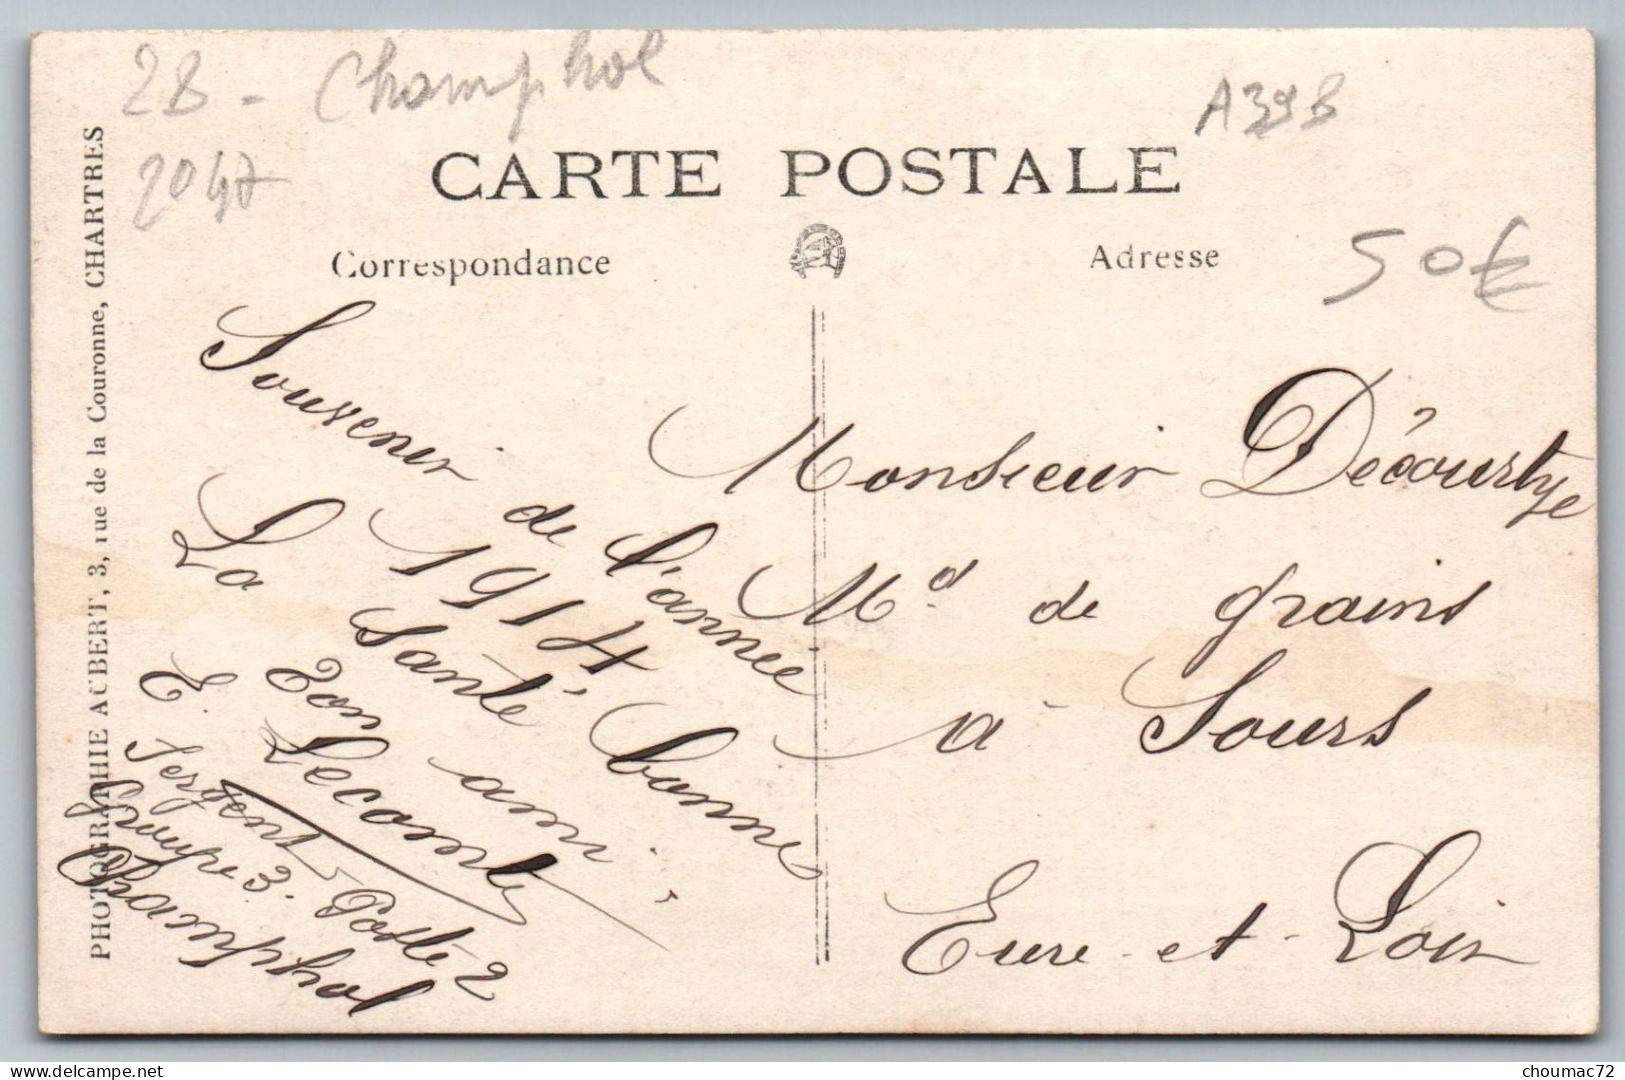 28 - Champhol
2047
A398
CARTE POSTALE
Correspondance
Adresse
50€
PHOTOGRAPHIE AUBERT, 3, rue de la Couronne, CHARTRES
Souvenir de l'année
1914
La Santé bonne
Ton ami,
E. Lecomte
Sergent
Groupe 3. Poste 2
Champhol
Monsieur Décourtye
Md de grains
à Sours
Eure-et-Loir
choumac72